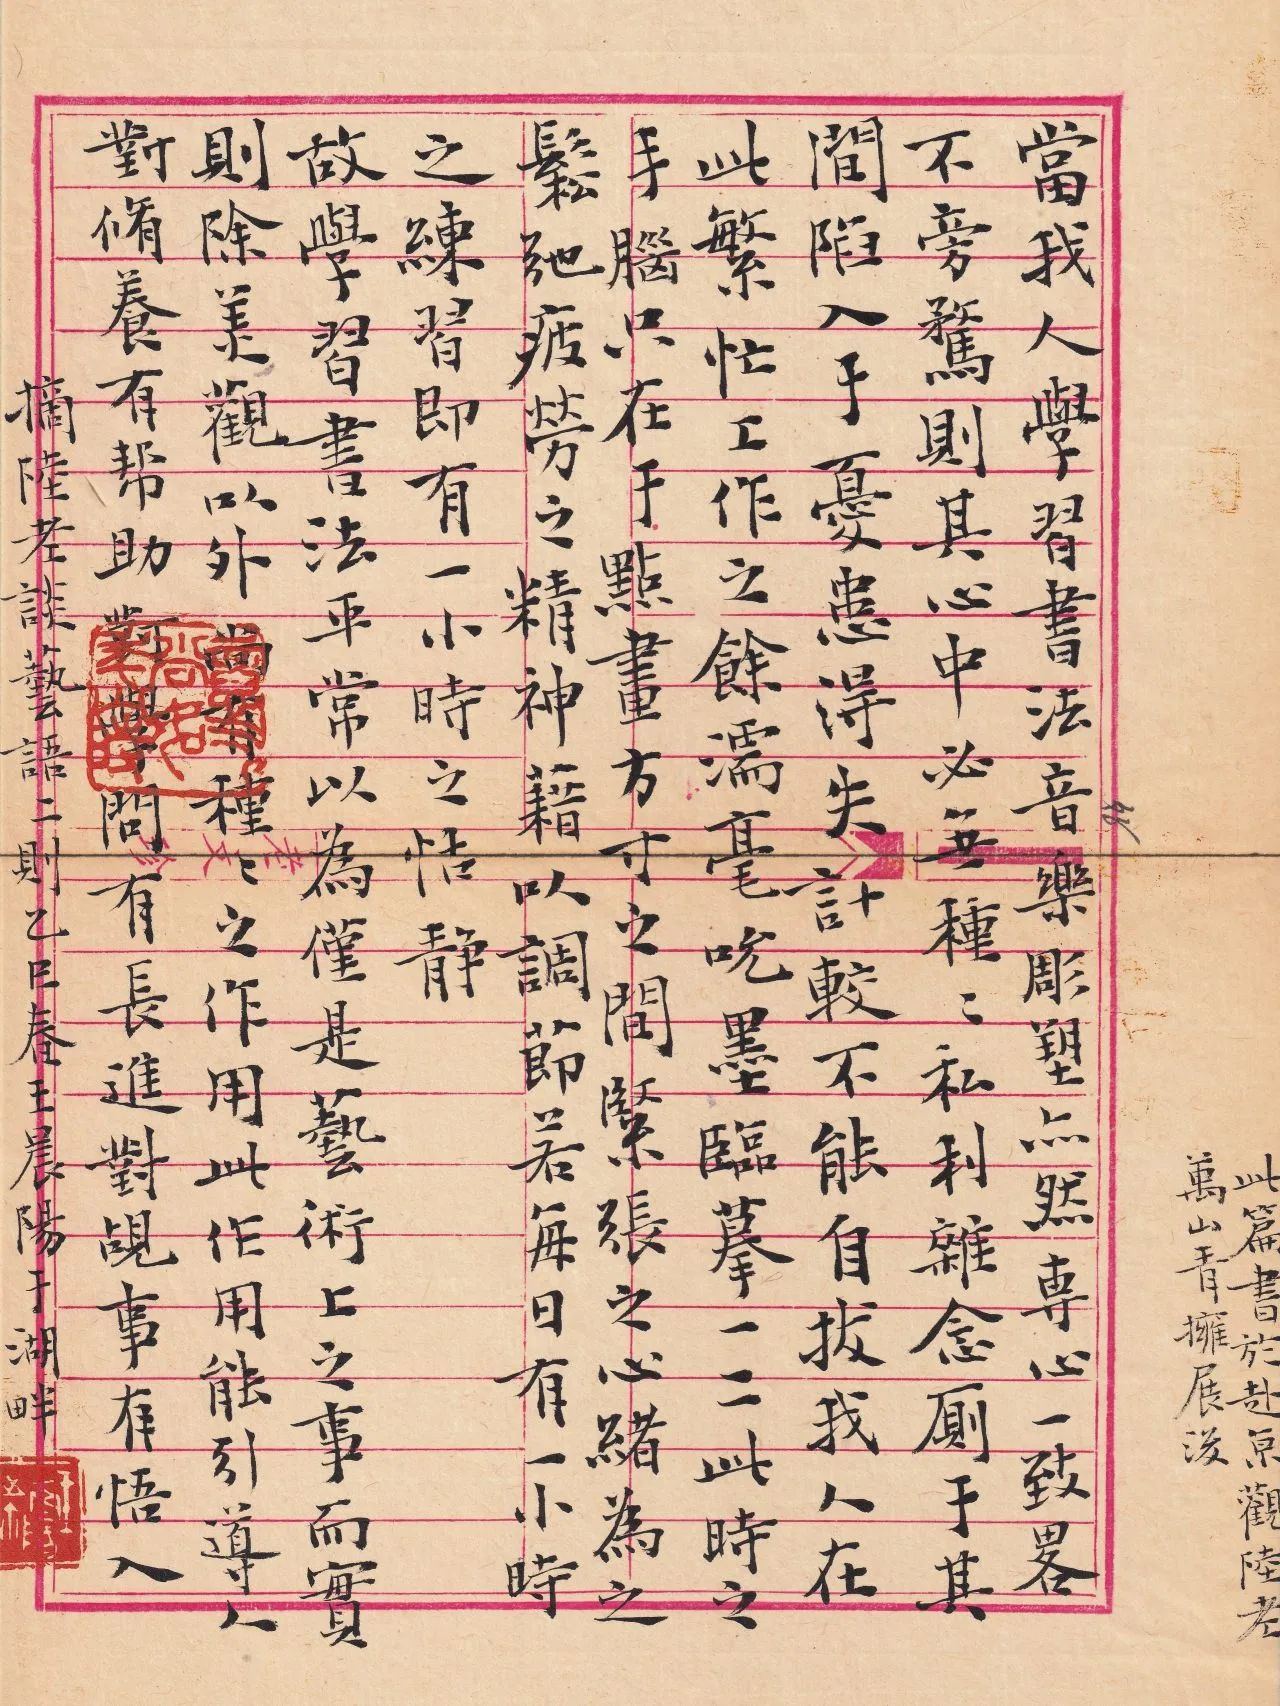 當我人學習書法音樂彫塑亦然專心一致畧
不旁騖則其心中必無種〻私利雜念厠于其
間陷入于憂患得失計較不能自拔我人在
此繁忙工作之餘濡毫吮墨臨摹一二此時之
手腦只在于點畫方寸之間緊張之心緒為之
鬆弛疲勞之精神藉以調節若每日有一小時
之練習即有一小時之恬静
故學習書法平常以為僅是藝術上之事而實
則除美觀以外尚有種〻之作用此作用能引導人
對脩養有帮助對學問有長進對覘事有悟入
摘陸老談藝語二則乙巳春王晨陽于湖畔
此篇書於赴京觀陸老
萬山青擁展後